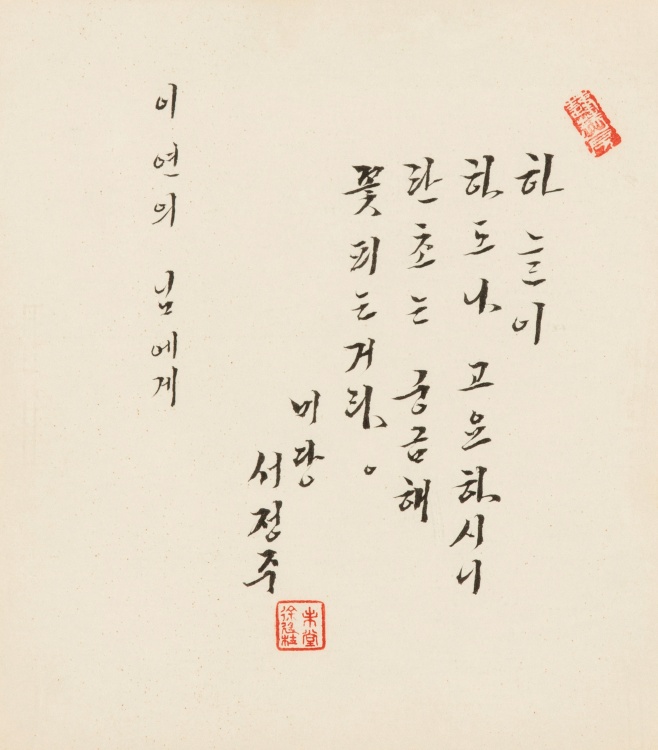 하늘이
하도나 고요하시니
란초는 궁금해
꽃피는거라。
미당
서정주
未堂
徐廷柱
이연의 님에게